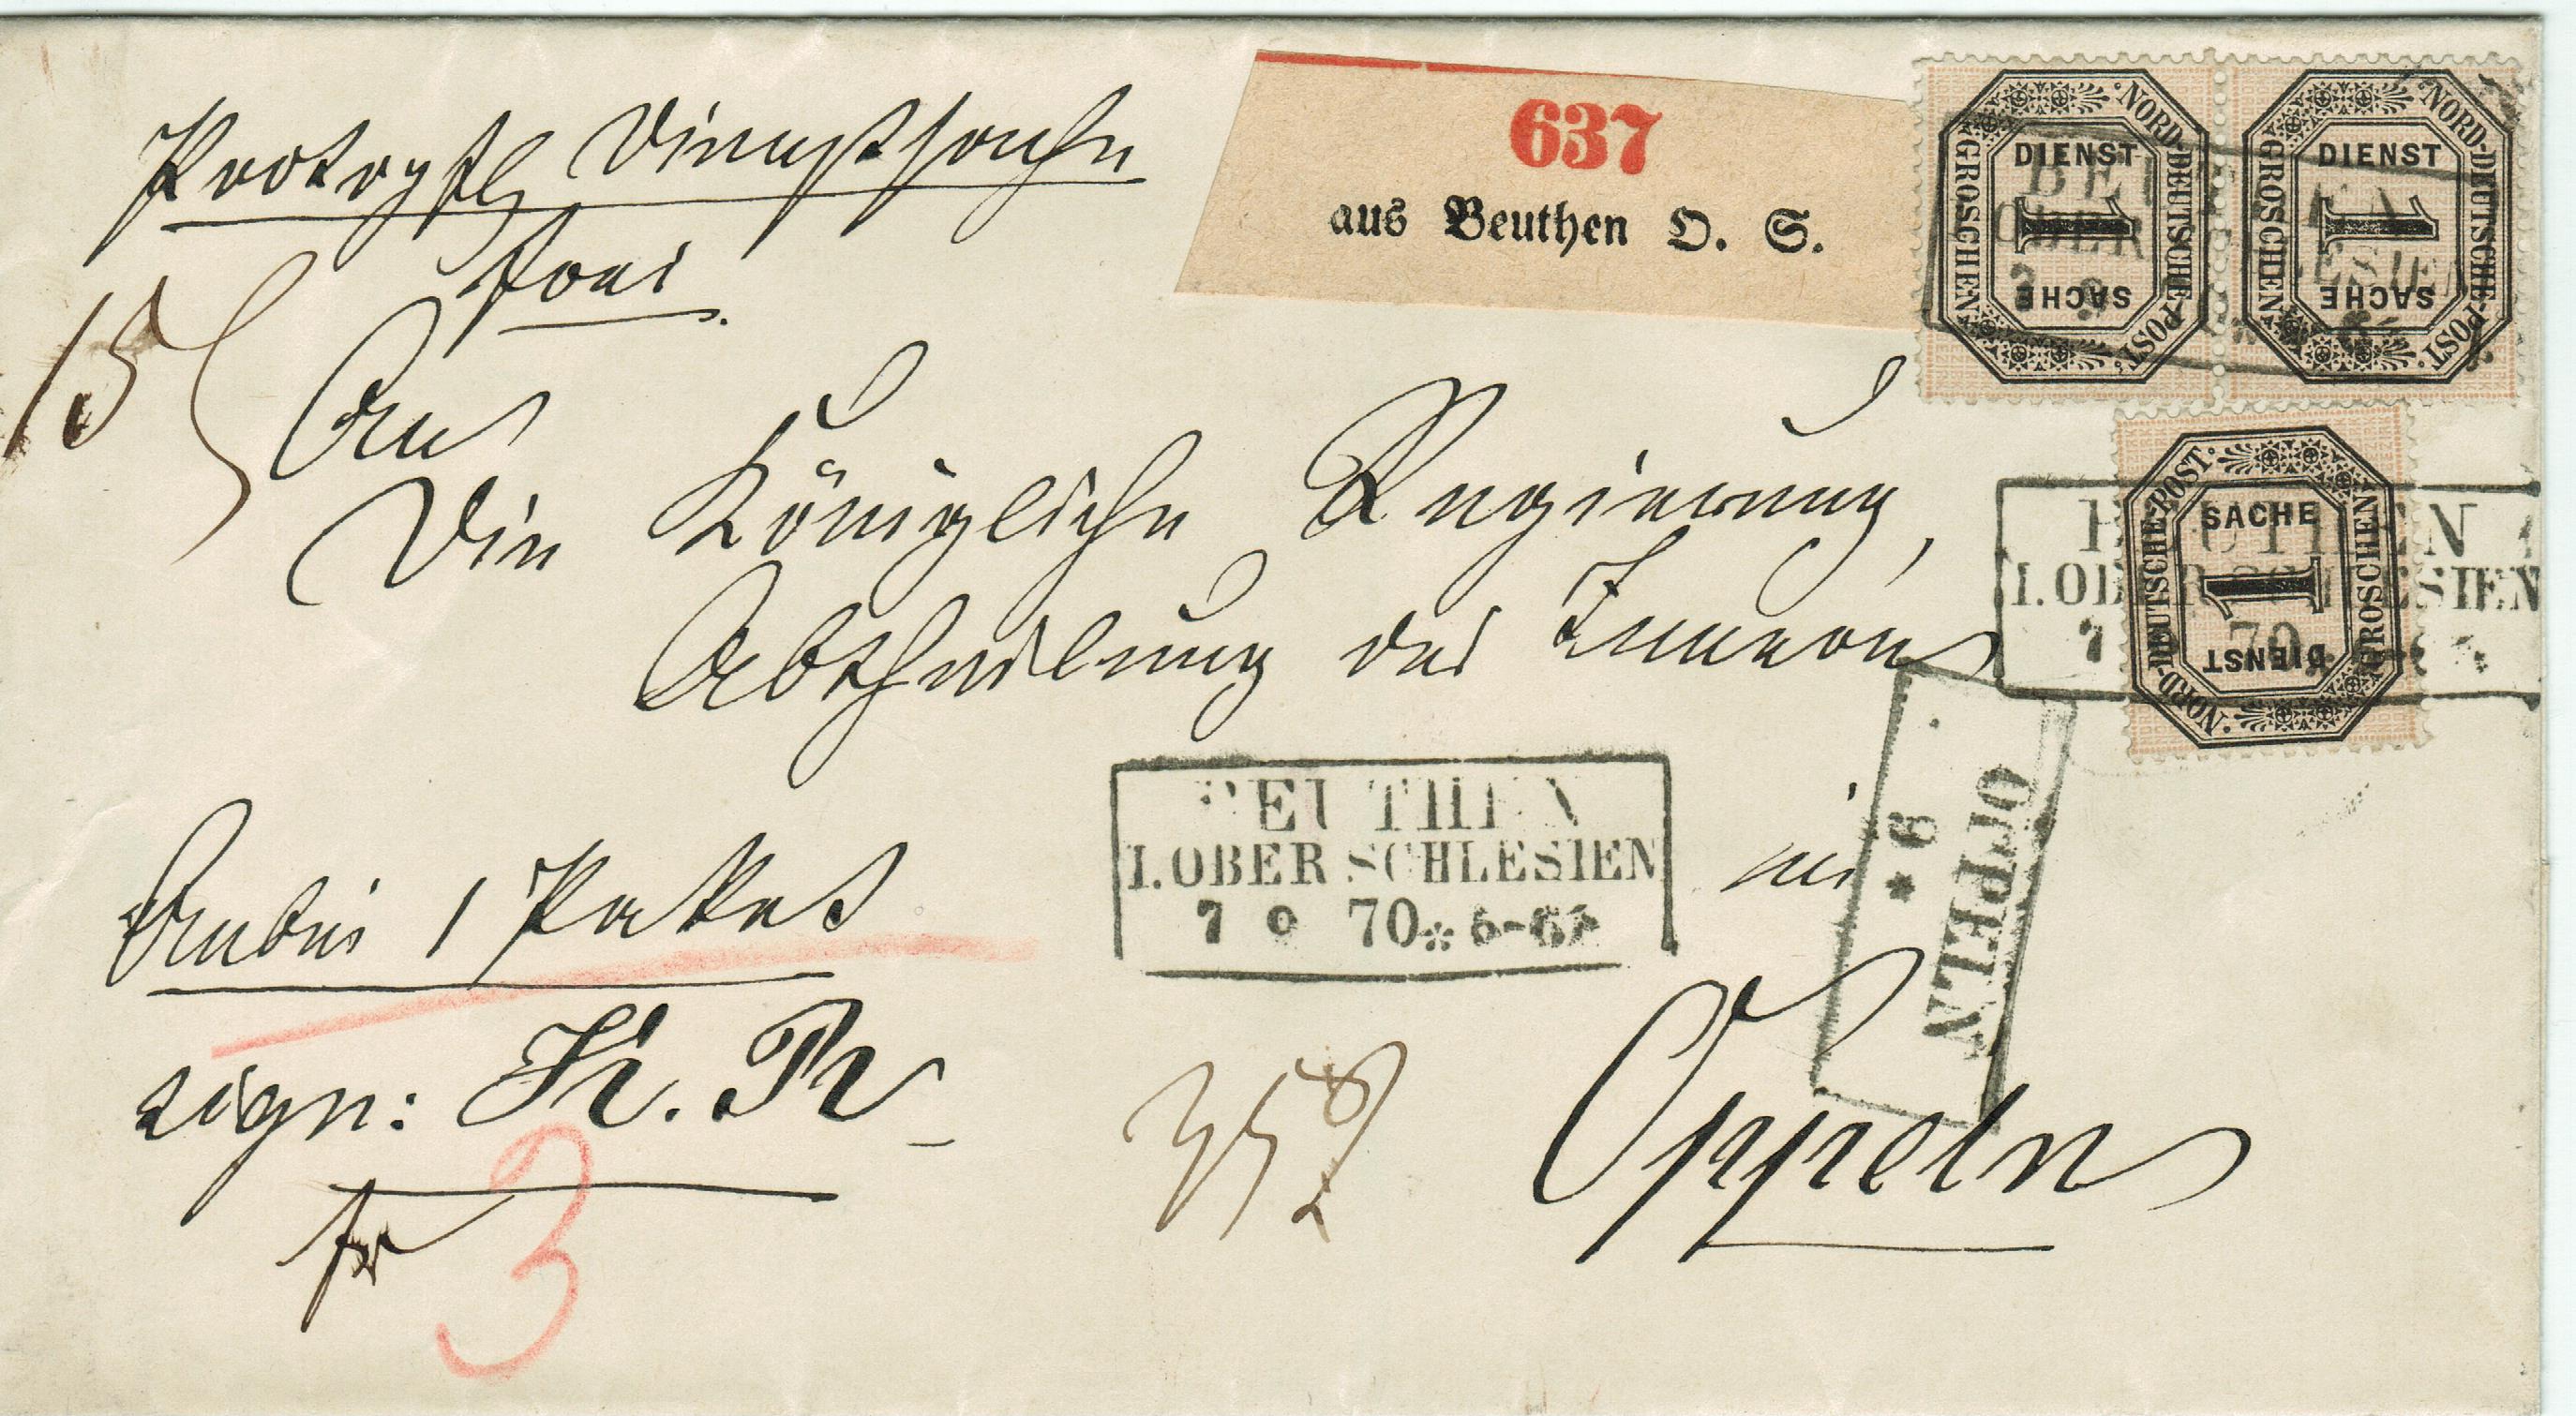 Portopfl. Dienstsache
frei.
637
aus Beuthen O. S.
NORD-DEUTSCHE-POST
DIENST
1
SACHE
GROSCHEN
NORD-DEUTSCHE-POST
DIENST
1
SACHE
GROSCHEN
15
An
Die Königliche Regierung,
Abtheilung des Innern
NORD-DEUTSCHE-POST
SACHE
1
DIENST
GROSCHEN
BEUTHEN
I. OBERSCHLESIEN
7 70
BEUTHEN
I. OBERSCHLESIEN
7 9 70 * 5-6
in
OPPELN
* 9
Oppeln
Anbei 1 Paket
sign: K. R.
fr
3